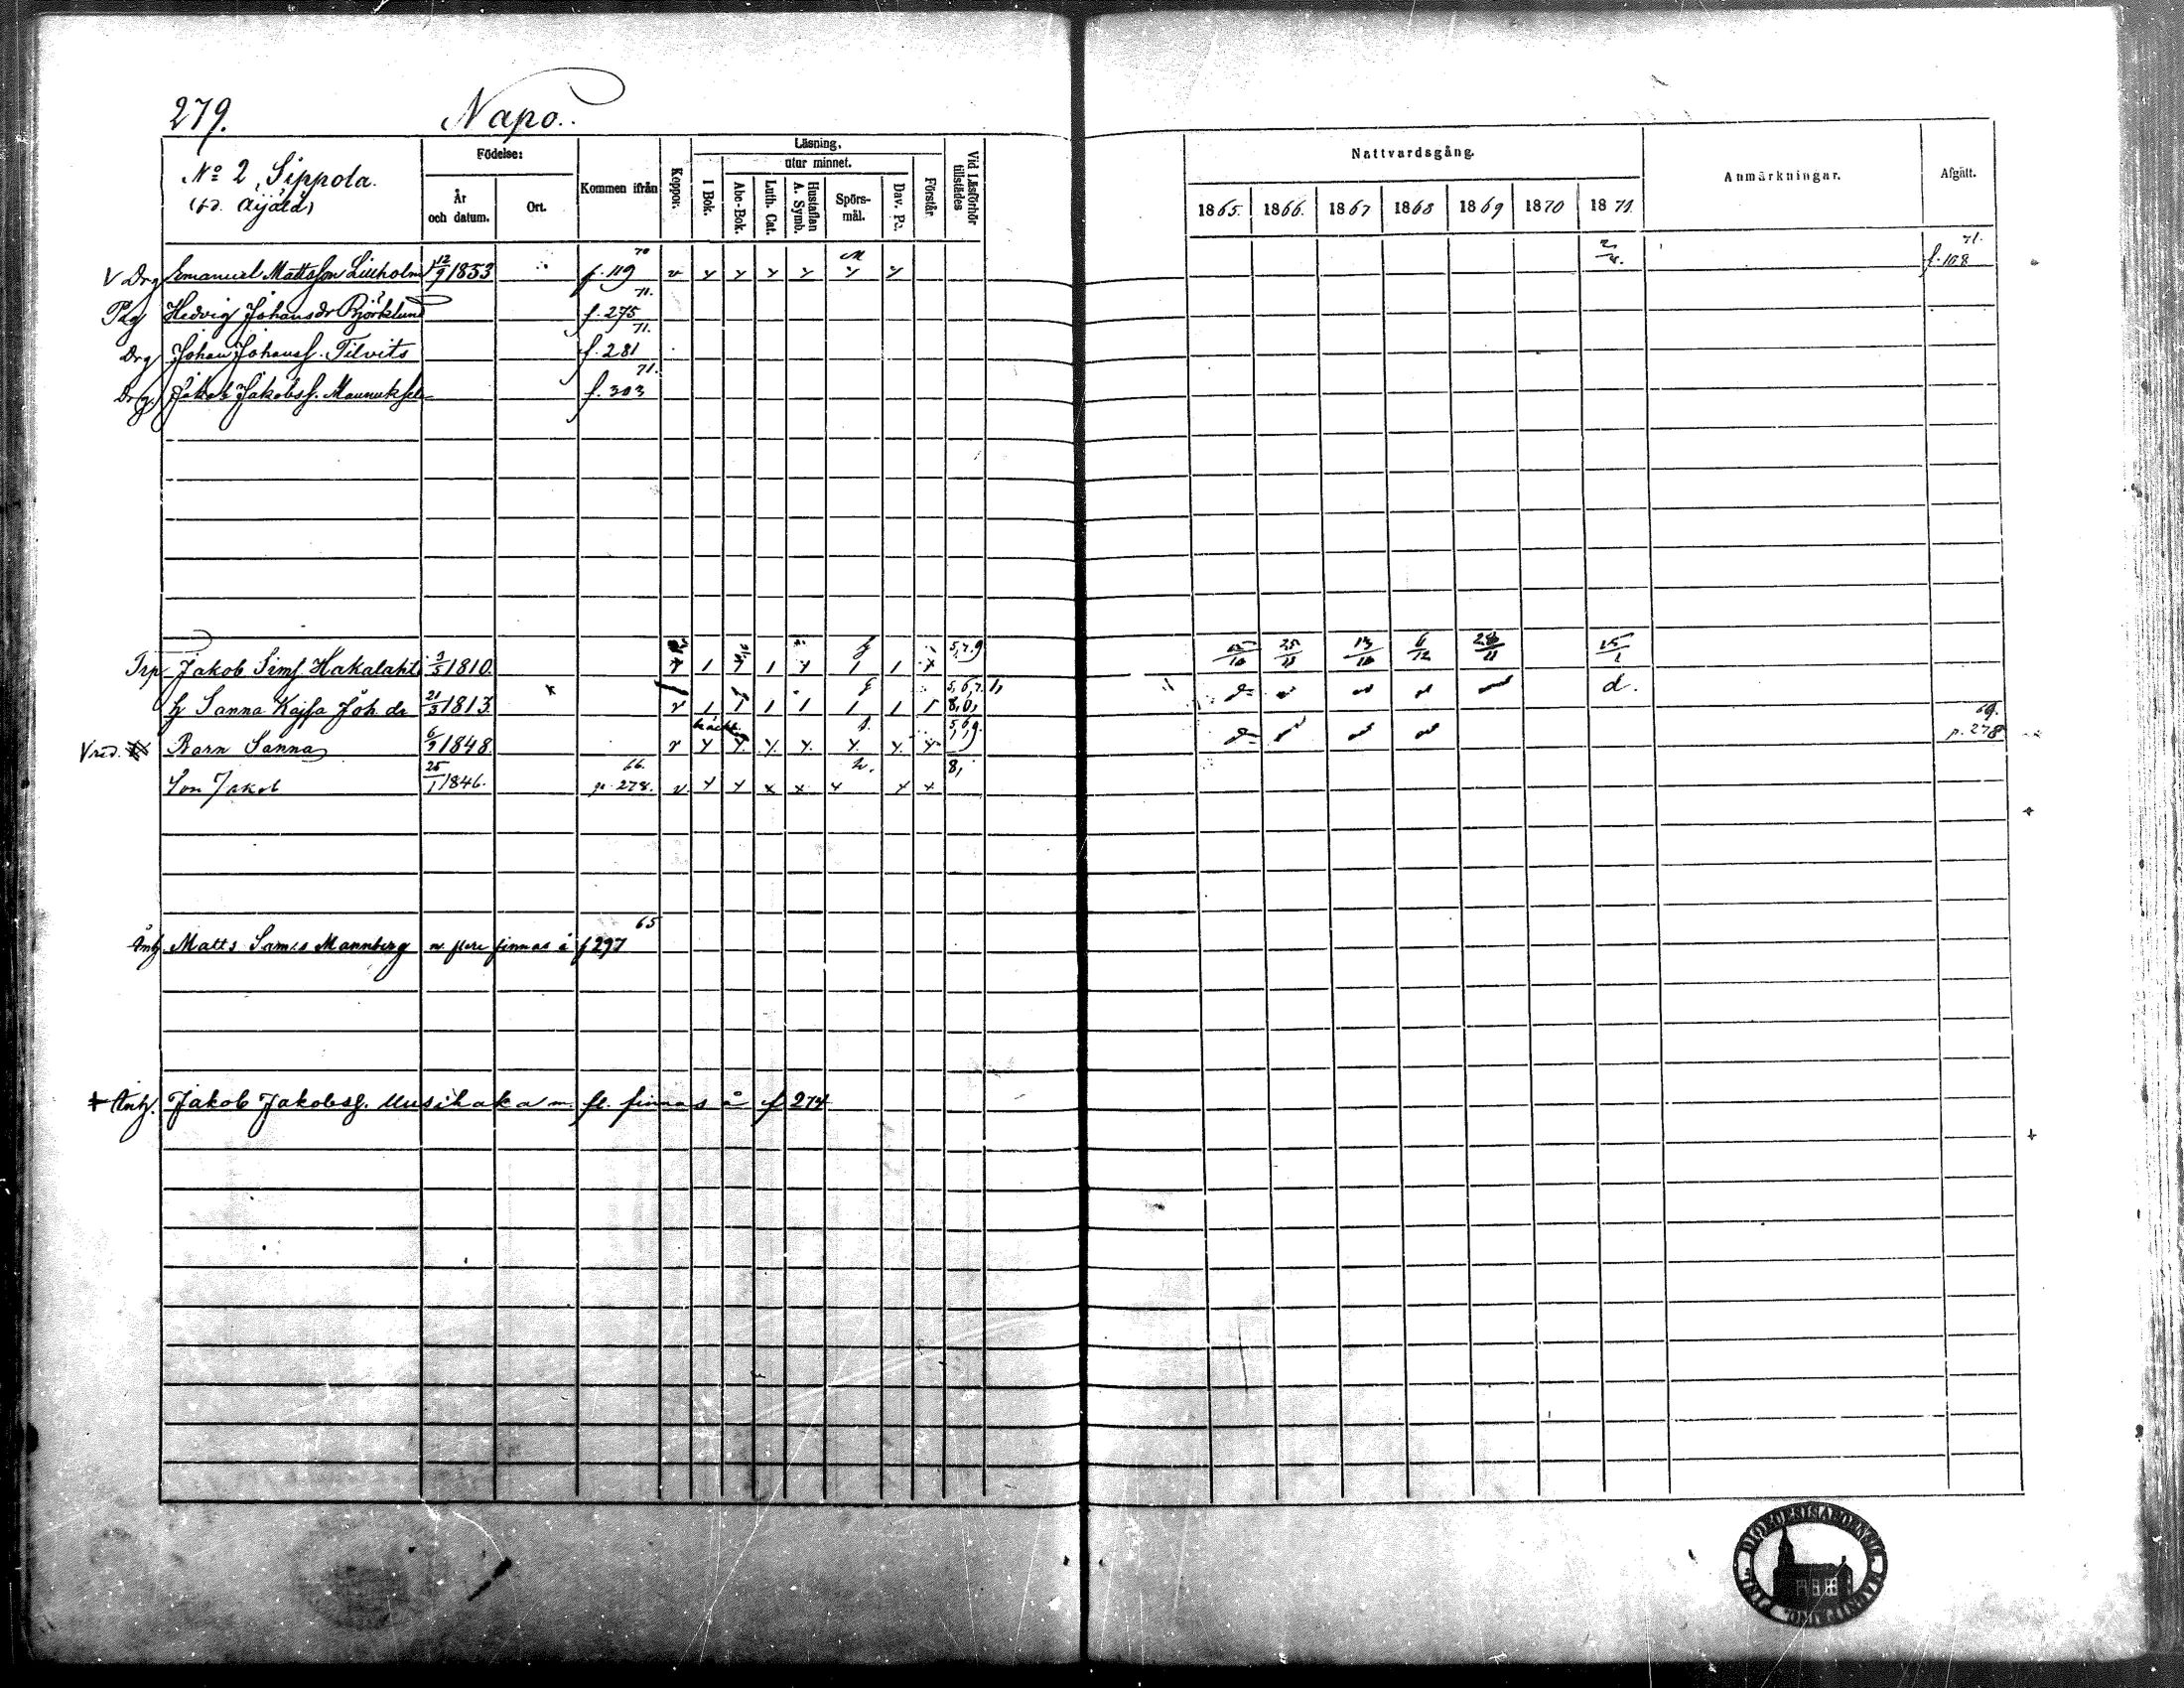 279. Napo.
Nº 2, Sippola.
Födelse:
År och datum.
Ort.
Kommen ifrån
Koppor.
Läsning,
utur minnet.
I Bok.
Abc-Bok.
Luth. Cat.
Hustaflan A. Symb.
Spörsmål.
Dav. Ps.
Förstår
Vid Läsförhör tillstädes
Nattvardsgång.
1865. 1866. 1867 1868 1869 1870 1871.
Anmärkningar.
Afgått.
V Drg Emanuel Mattsson 12/9 1853 f. 119 70 v y y y y y y f. 108 71.
Pig Hedvig Johansdr Björklund f. 275 71.
Drg Johan Johanss. Tilvits f. 281 71.
Drg. Jakob Jakobss. f. 303 71.
Trp Jakob Sims. Hakalaht 3/5 1810. 5,7,9 25/11 6/12 28/11 15/1
h Sanna Kajsa Joh. dr 21/3 1813. v 1 1 1 1 1 1 1 5,6,7. 1, 8,0, d.
Barn Sanna 6/9 1848. v y y. y. y. y. y. y 5,6,9. p. 278 69.
Son Jakob 25/1 1846. p. 278. 66. v y y x x y y x 8,
Matts Sam:s Mannberg m. flere finnas å f 297 65
Jakob Jakobss. Uusihaka m. fl. finnas å f 274